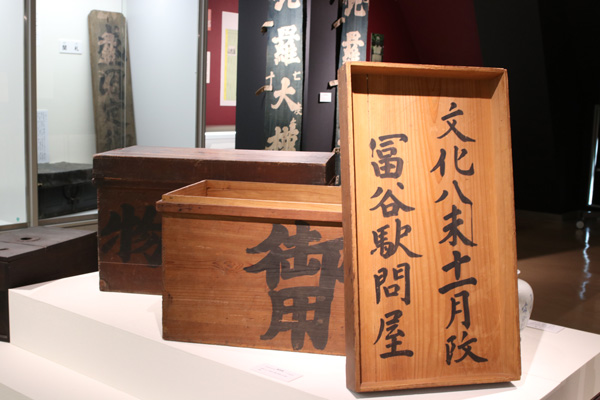 文化八未十一月改
冨谷駅問屋
御用
物
羅大